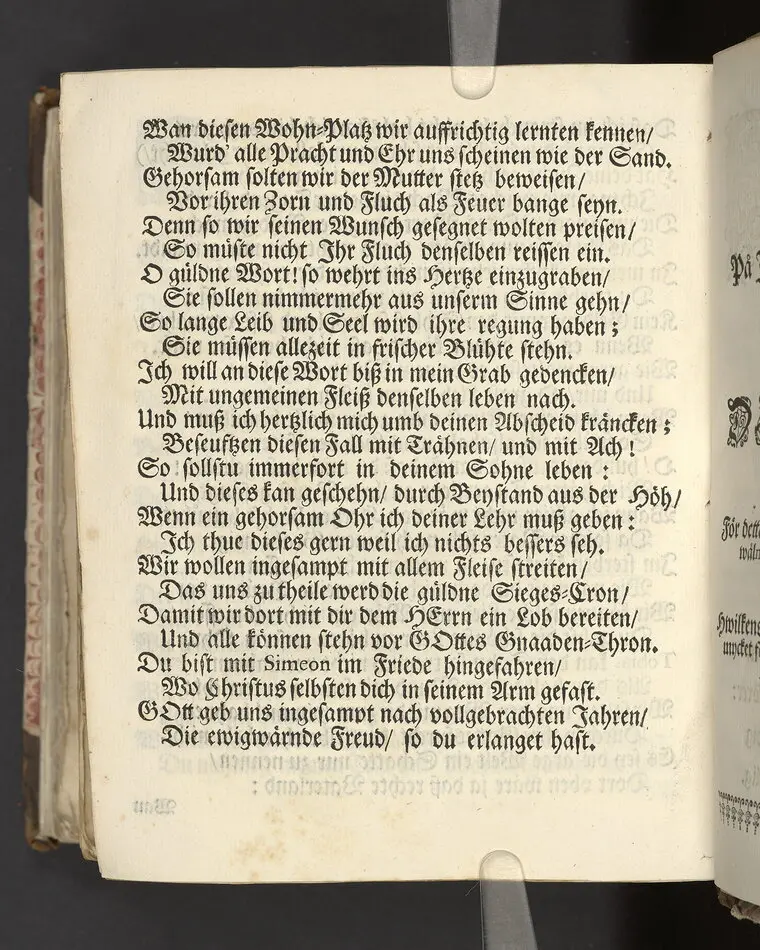 Wan diesen Wohn-Platz wir auffrichtig lernten kennen/
Wurd' alle Pracht und Ehr uns scheinen wie der Sand.
Gehorsam solten wir der Mutter stetz beweisen/
Vor ihren Zorn und Fluch als Feuer bange seyn.
Denn so wir seinen Wunsch gesegnet wolten preisen/
So müste nicht Ihr Fluch denselben reissen ein.
O güldne Wort! so wehrt ins Hertze einzugraben/
Sie sollen nimmermehr aus unserm Sinne gehn/
So lange Leib und Seel wird ihre regung haben;
Sie müssen allezeit in frischer Blühte stehn.
Ich will an diese Wort biß in mein Grab gedencken/
Mit ungemeinen Fleiß denselben leben nach.
Und muß ich hertzlich mich umb deinen Abscheid kräncken;
Beseuftzen diesen Fall mit Trähnen/ und mit Ach!
So sollstu immerfort in deinem Sohne leben:
Und dieses kan geschehn/ durch Beystand aus der Höh/
Wenn ein gehorsam Ohr ich deiner Lehr muß geben:
Ich thue dieses gern weil ich nichts bessers seh.
Wir wollen ingesampt mit allem Fleise streiten/
Das uns zu theile werd die güldne Sieges-Cron/
Damit wir dort mit dir dem HErrn ein Lob bereiten/
Und alle können stehn vor GOttes Gnaaden-Thron.
Du bist mit Simeon im Friede hingefahren/
Wo Christus selbsten dich in seinem Arm gefast.
GOtt geb uns ingesampt nach vollgebrachten Jahren/
Die ewigwärnde Freud/ so du erlanget hast.
På
För dett
Hwilkens
mycket f